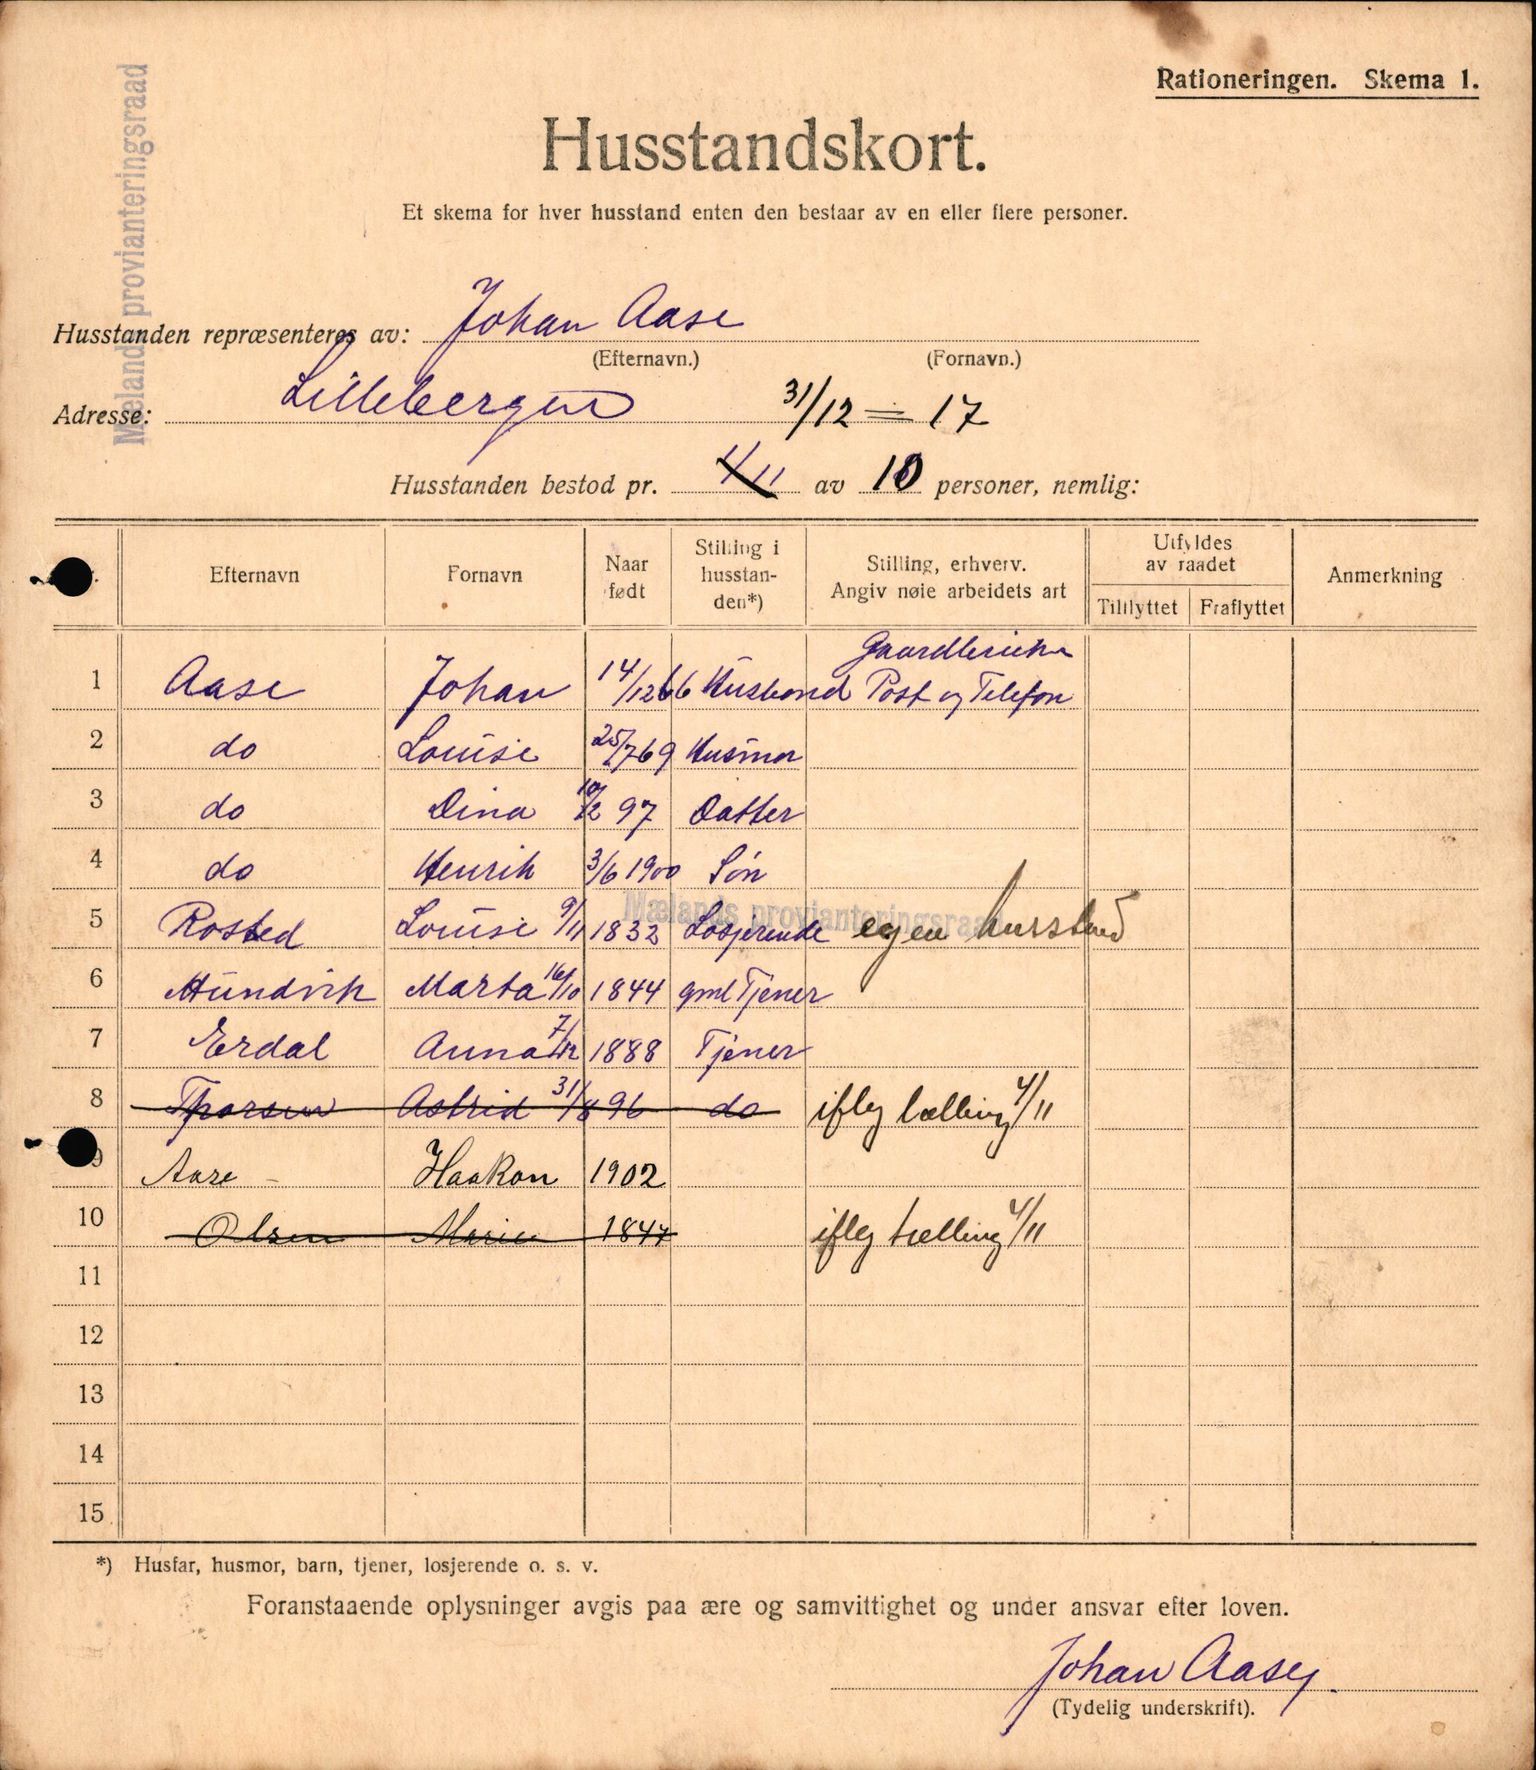 Rationeringen. Skema 1.
Mælands provianteringsraad
Husstandskort.
Et skema for hver husstand enten den bestaar av en eller flere personer.
Husstanden repræsenteres av: Johan Aase
(Efternavn.) (Fornavn.)
Adresse: Lillebergen 31/12 = 17
Husstanden bestod pr. 4/11 av 10 personer, nemlig:
Efternavn Fornavn Naar født Stilling i husstanden*) Stilling, erhverv. Angiv nøie arbeidets art Utfyldes av raadet Tilflyttet Fraflyttet Anmerkning
1 Aase Johan 14/12 66 Husbond Gaardbruker Post og Telefon
2 do Louise 25/7 69 Husmor
3 do Dina 10/2 97 Datter
4 do Henrik 3/6 1900 Søn
Mælands provianteringsraad
5 Rosted Louise 9/11 1832 Losjerende egen husstand
6 Hundvik Marta 16/10 1844 gml Tjener
7 Erdal Anna 7/12 1888 Tjener
8 Thorsen Astrid 31/8 96 do iflg tælling 4/11
9 Aase - Haakon 1902
10 Olsen Marie 1847 iflg tælling 4/11
11
12
13
14
15
*) Husfar, husmor, barn, tjener, losjerende o. s. v.
Foranstaaende oplysninger avgis paa ære og samvittighet og under ansvar efter loven.
Johan Aase
(Tydelig underskrift).